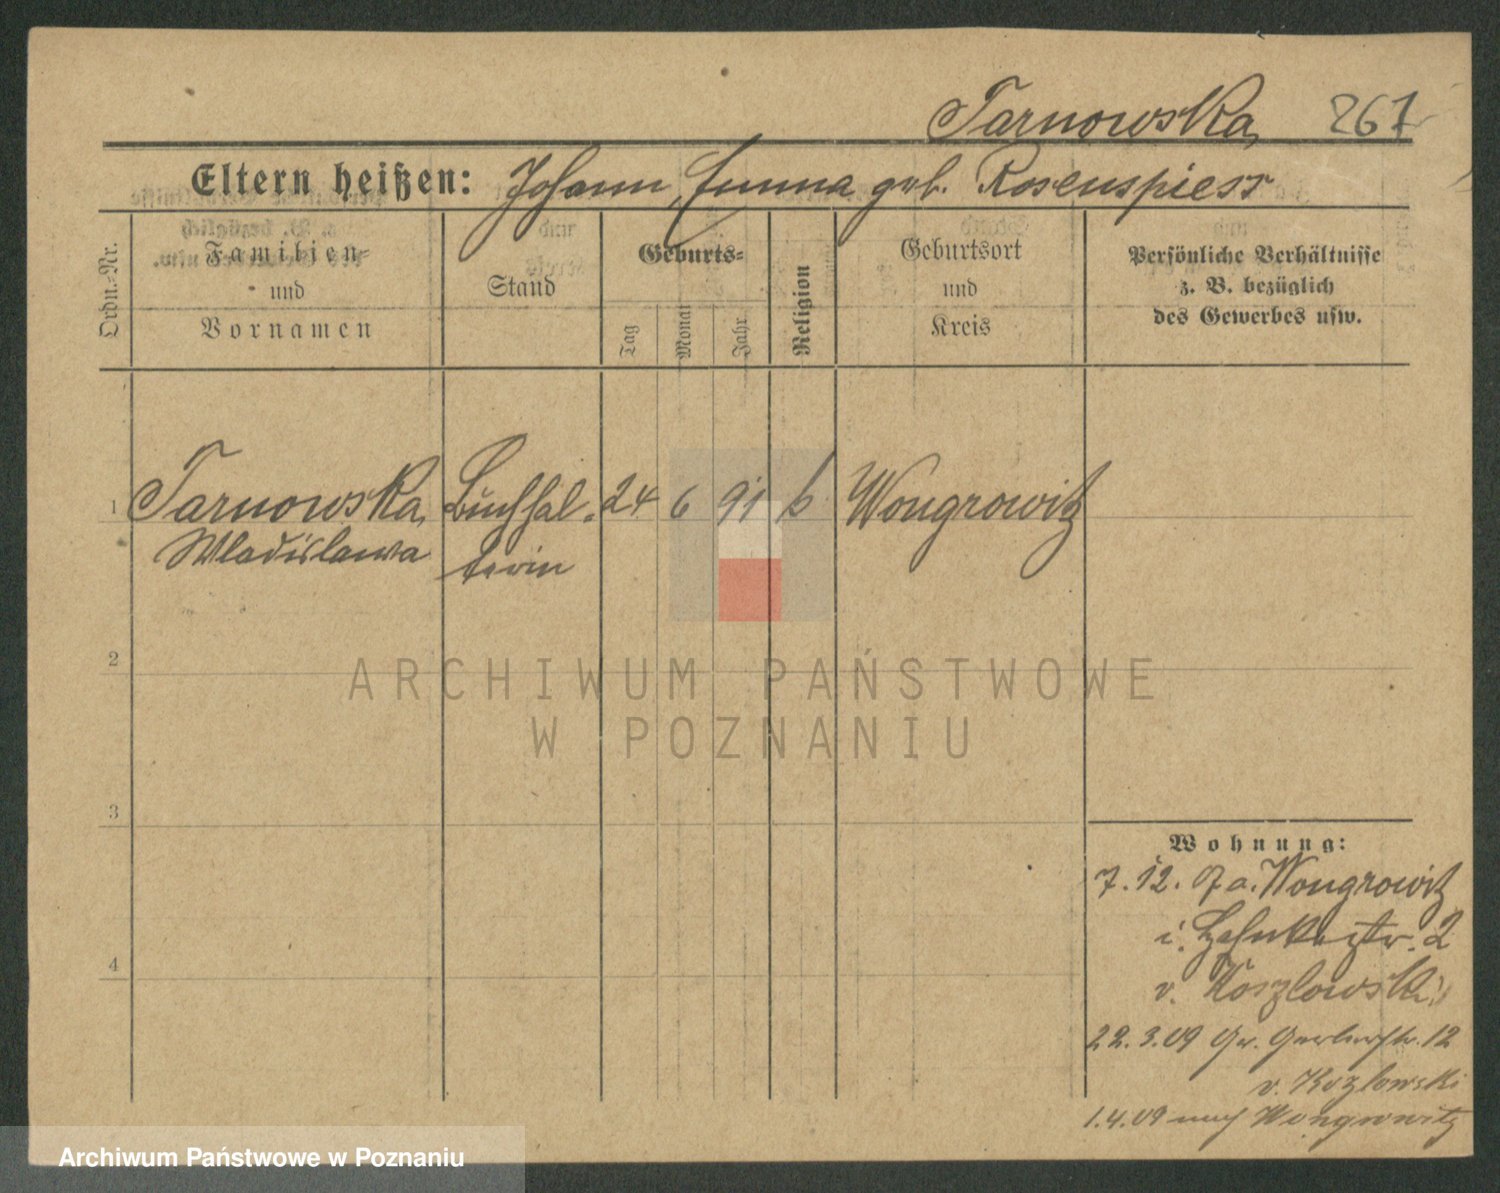 Tarnowska 267
Eltern heißen: Johann, Emma geb. Rosenspiess
Ordn.-Nr.
Familien-
und
Vornamen
Stand
Geburts-
Tag
Monat
Jahr
Religion
Geburtsort
und
Kreis
Persönliche Verhältnisse
z. B. bezüglich
des Gewerbes usw.
1 Tarnowska Buchhal- 24 6 91 k Wongrowitz
Wladislawa terin
2
3
4
Wohnung:
7.12. 07 a. Wongrowitz
2
v. Koszlowski
22.3.09 Gr. Gerberstr. 12
v. Kozlowski
1.4.09 nach Wongrowitz
ARCHIWUM PAŃSTWOWE
W POZNANIU
Archiwum Państwowe w Poznaniu